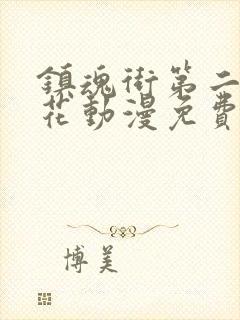 鎮魂街第二
花動漫免費
博美